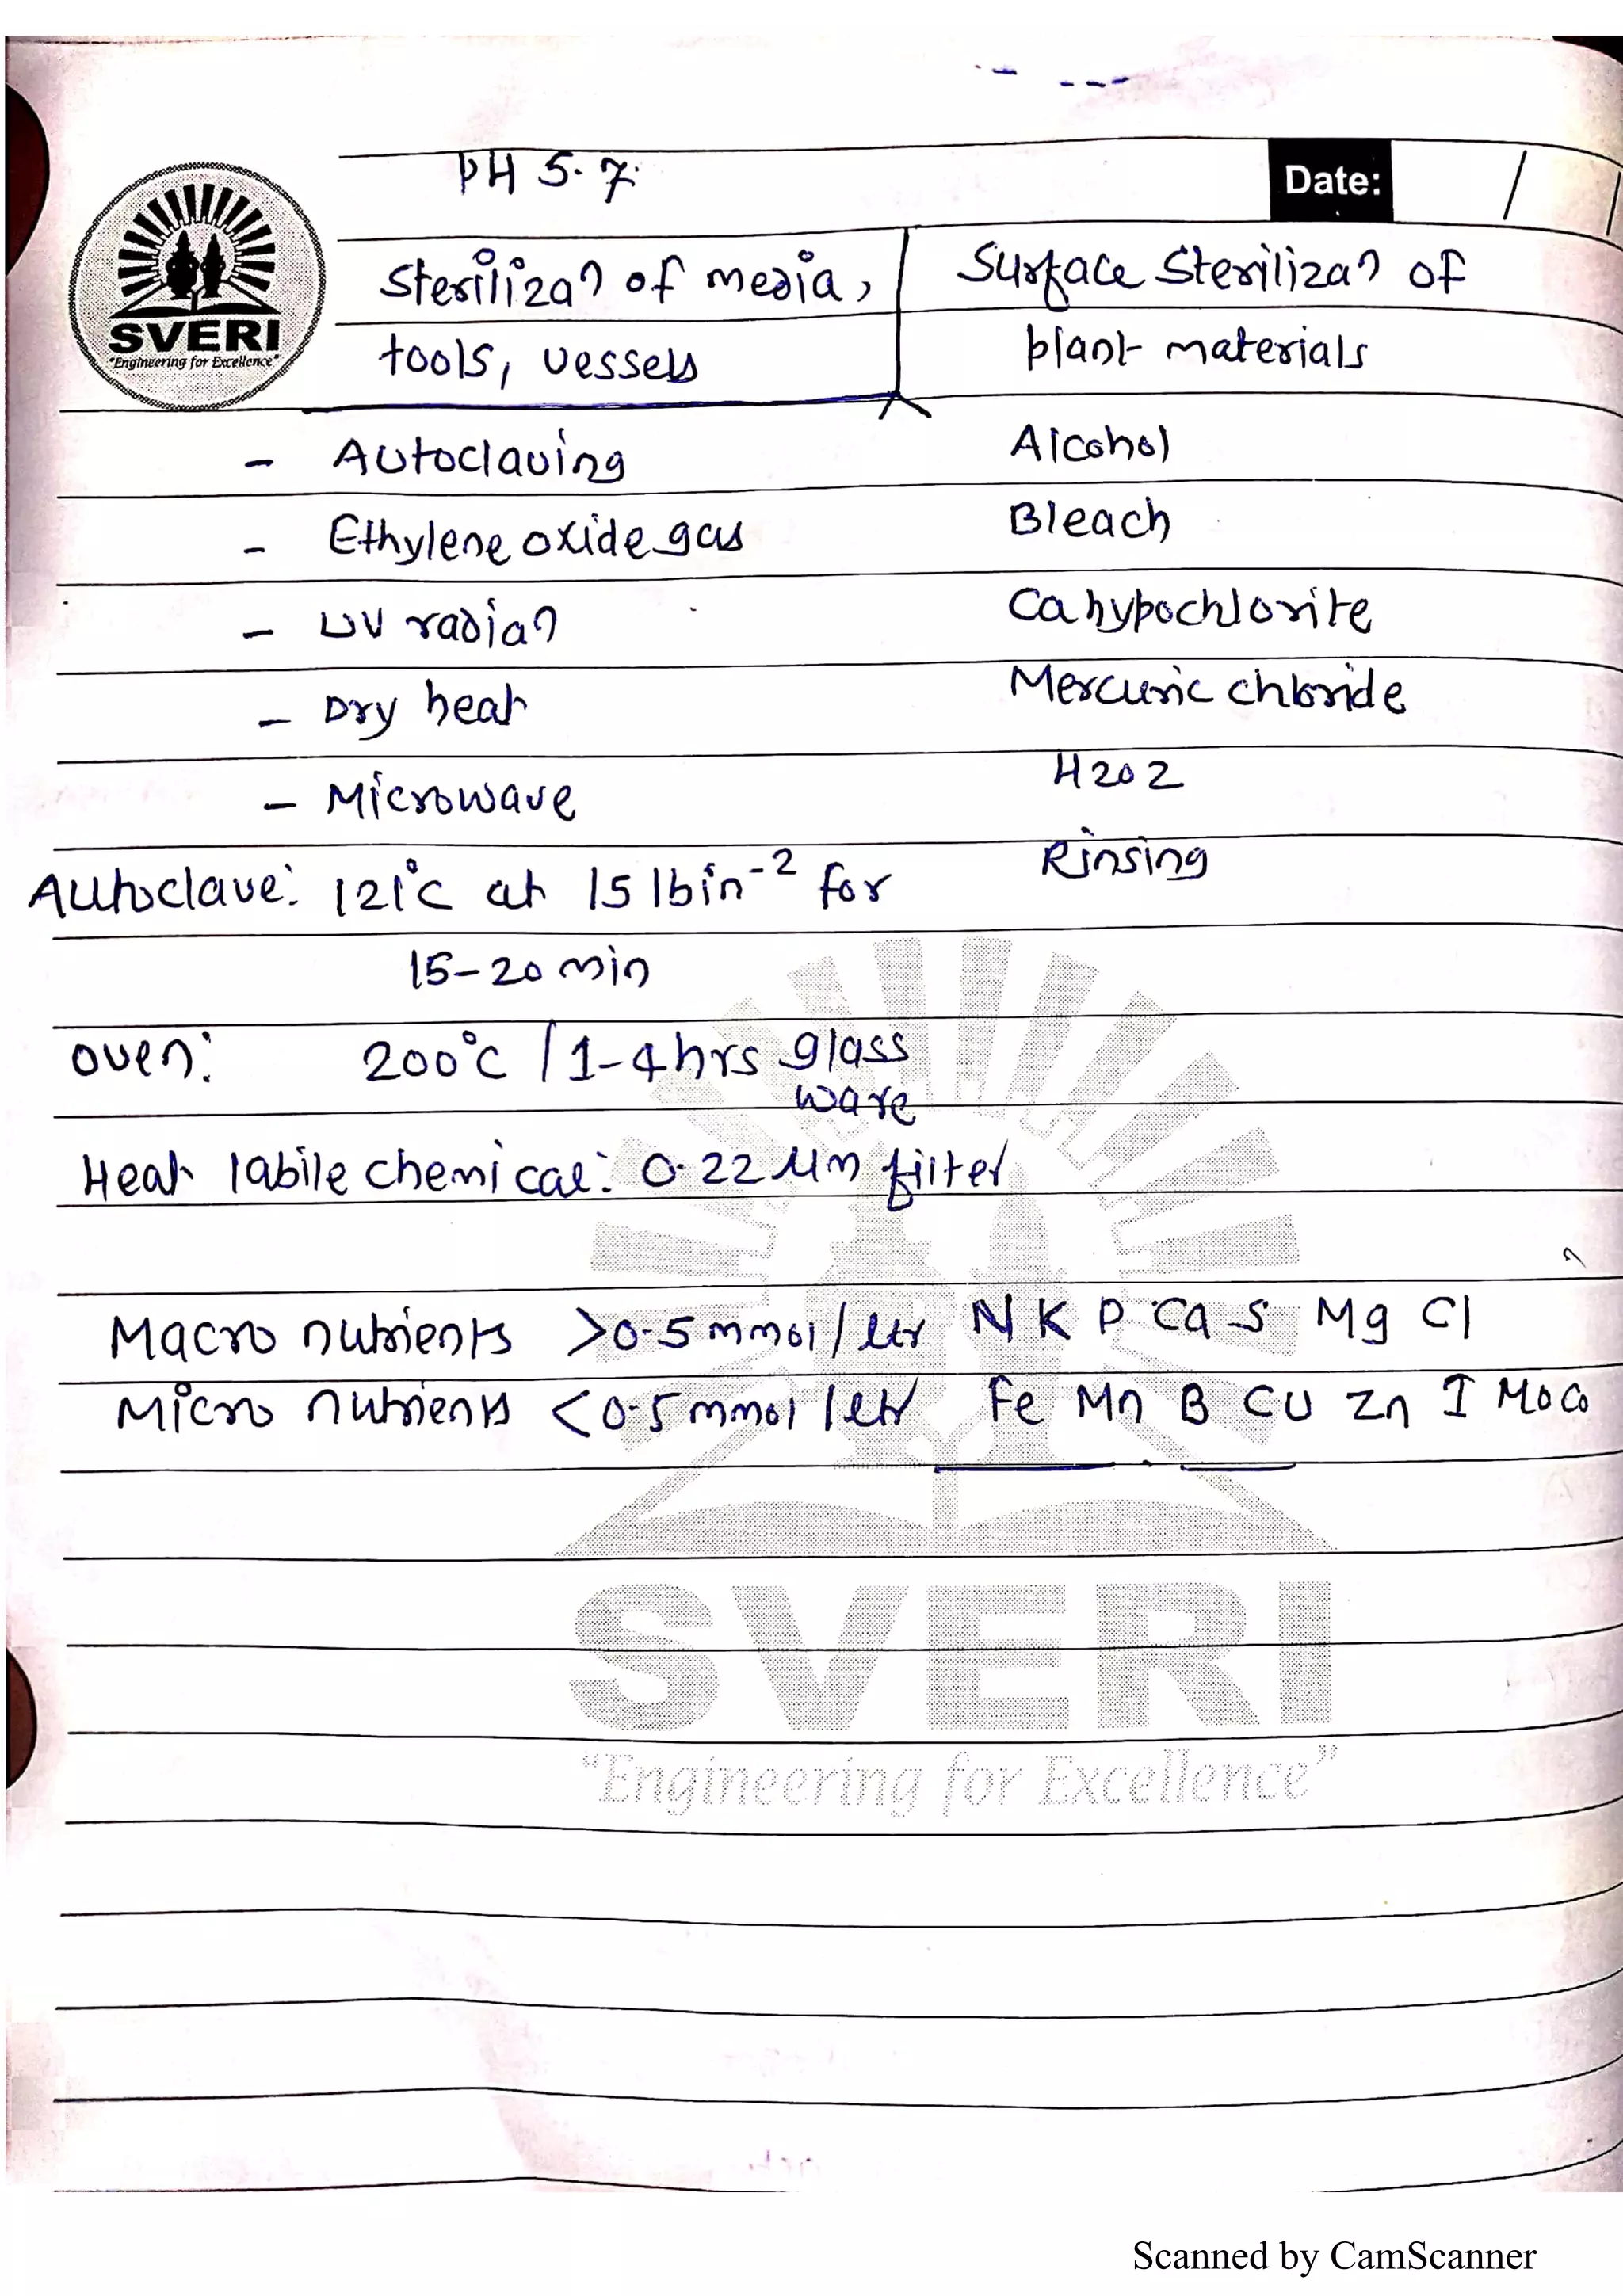 PH 5.7.
Date: /
SVERI
"Engineering for Excellence"
Sterilizan of media,
tools, vessels
Surface Sterilizan of
plant materials
- Autoclaving
Alcohol
- Ethylene oxide gas
Bleach
- UV radian
Ca hypochlorite
- Dry heat
Mercuric chloride
- Microwave
H2O2
Rinsing
Autoclave: 121°C at 15 lbin-2 for
15-20 min
oven: 200°C / 1-4 hrs glass
ware
Heat labile chemical: 0.22 µm filter
Macro nutrients >0.5 mmol / ltr N K P Ca S Mg Cl
Micro nutrients <0.5 mmol / ltr Fe Mn B CU Zn I Mo Co
SVERI
"Engineering for Excellence"
Scanned by CamScanner